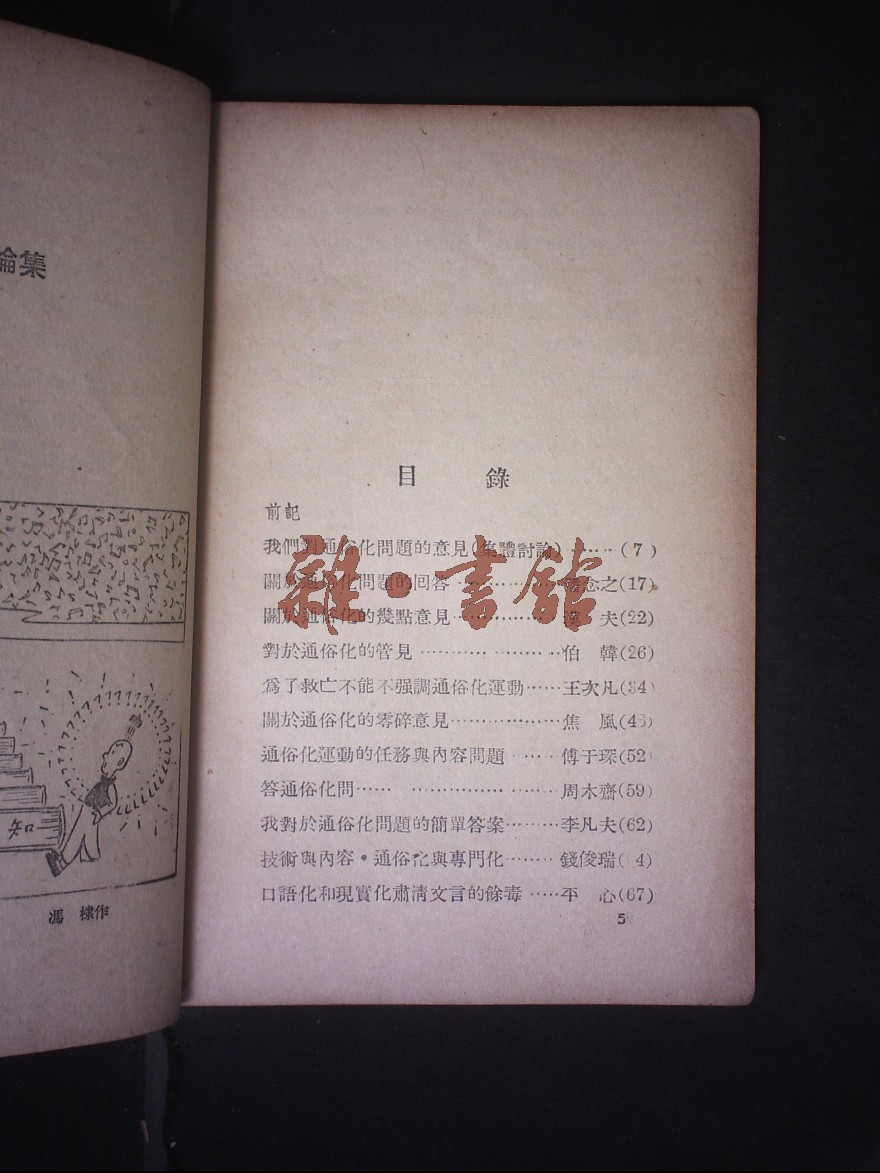 論集
馮 棣作
目 錄
前記
我們對通俗化問題的意見(集體討論)……(7)
關於通俗化問題的回答……………潘念之(17)
關於通俗化的幾點意見……………漢 夫(22)
對於通俗化的管見……………伯 韓(26)
爲了救亡不能不强調通俗化運動……王次凡(34)
關於通俗化的零碎意見………………焦 風(4
通俗化運動的任務與內容問題……傅于琛(52)
答通俗化問……………………周木齋(59)
我對於通俗化問題的簡單答案………李凡夫(62)
技術與內容・通俗化與專門化………錢俊瑞( 4)
口語化和現實化肅淸文言的餘毒……平 心(67)
5
雜・書館